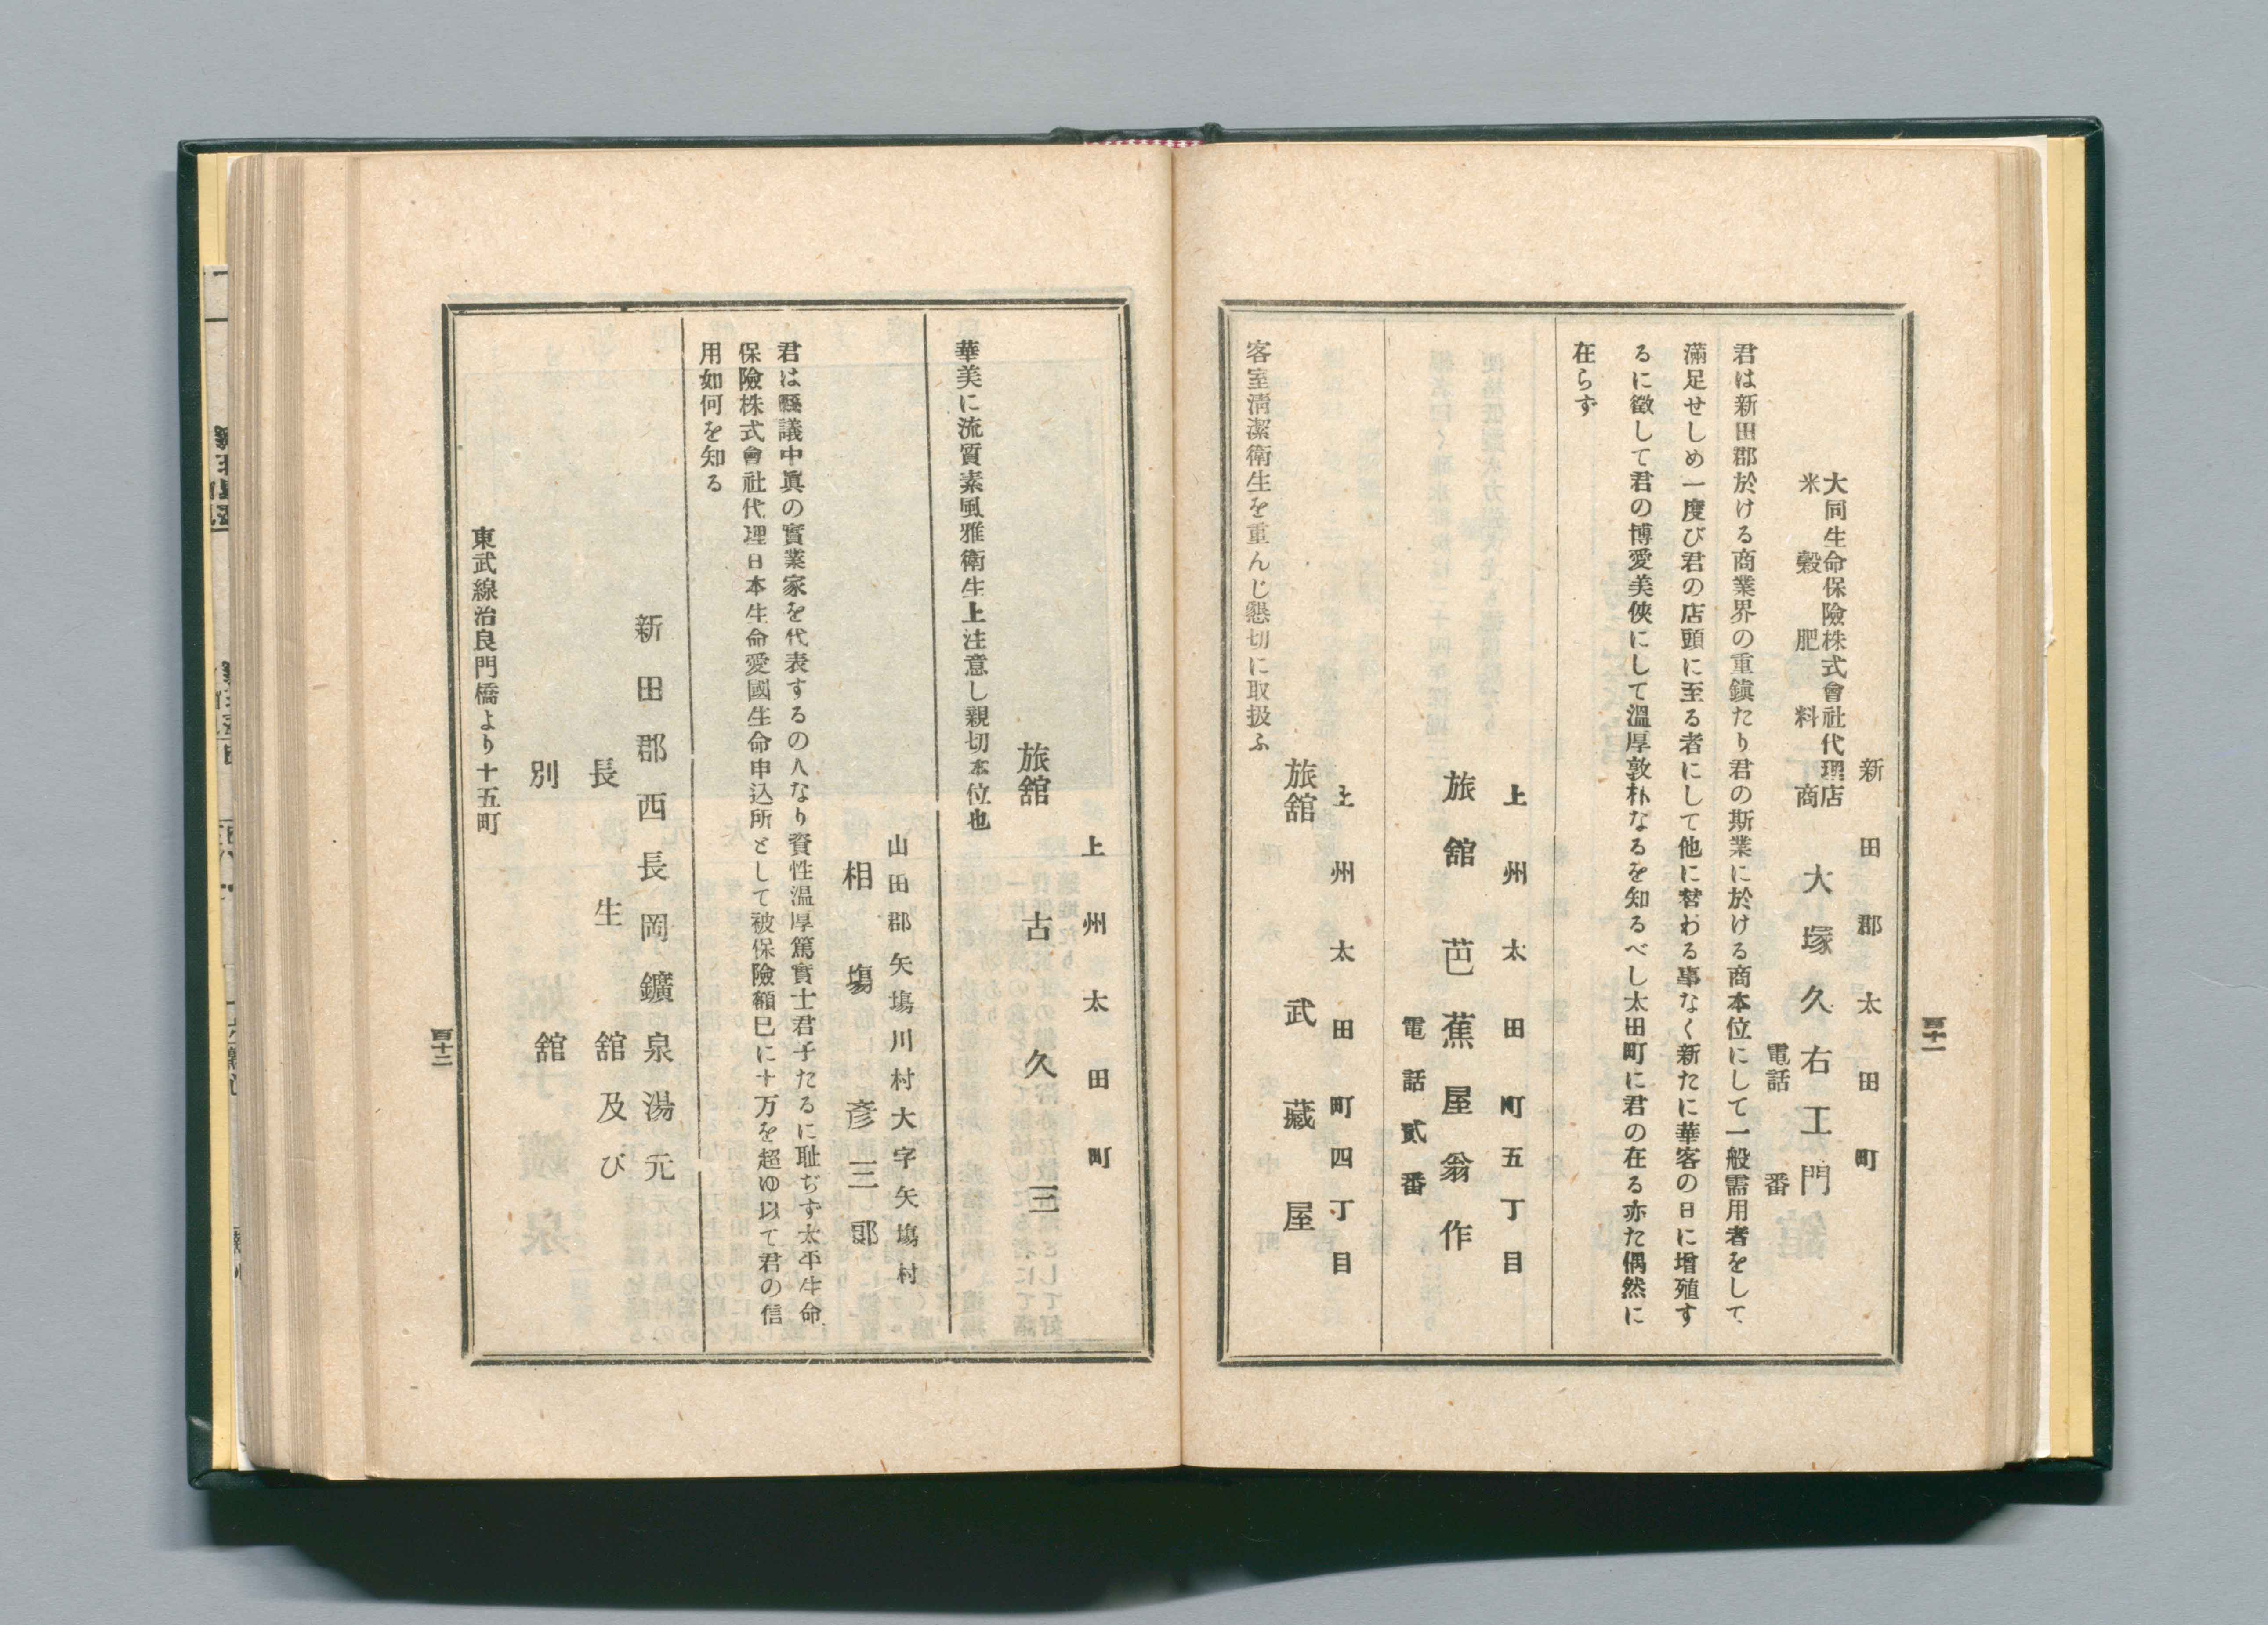 新田郡太田町
大同生命保險株式會社代理店
米穀肥料商
大塚久右工門
電話　　番
君は新田郡於ける商業界の重鎭たり君の斯業に於ける商本位にして一般需用者をして
滿足せしめ一度び君の店頭に至る者にして他に替わる事なく新たに華客の日に増殖す
るに徵して君の博愛美俠にして溫厚敦朴なるを知るべし太田町に君の在る亦た偶然に
在らず
上州太田町五丁目
旅舘　芭蕉屋翁作
電話貳番
上州太田町四丁目
旅舘　武藏屋
客室淸潔衛生を重んじ懇切に取扱ふ
百十一
上州太田町
旅舘　古久三
華美に流質素風雅衛生上注意し親切本位也
山田郡矢塲川村大字矢塲村
相塲彥三郞
君は縣議中眞の實業家を代表するの人なり資性溫厚篤實士君子たるに耻ぢず太平生命
保險株式會社代理日本生命愛國生命申込所として被保險額已に十万を超ゆ以て君の信
用如何を知る
新田郡西長岡鑛泉湯元
長生舘及び
別舘
東武線治良門橋より十五町
百十二